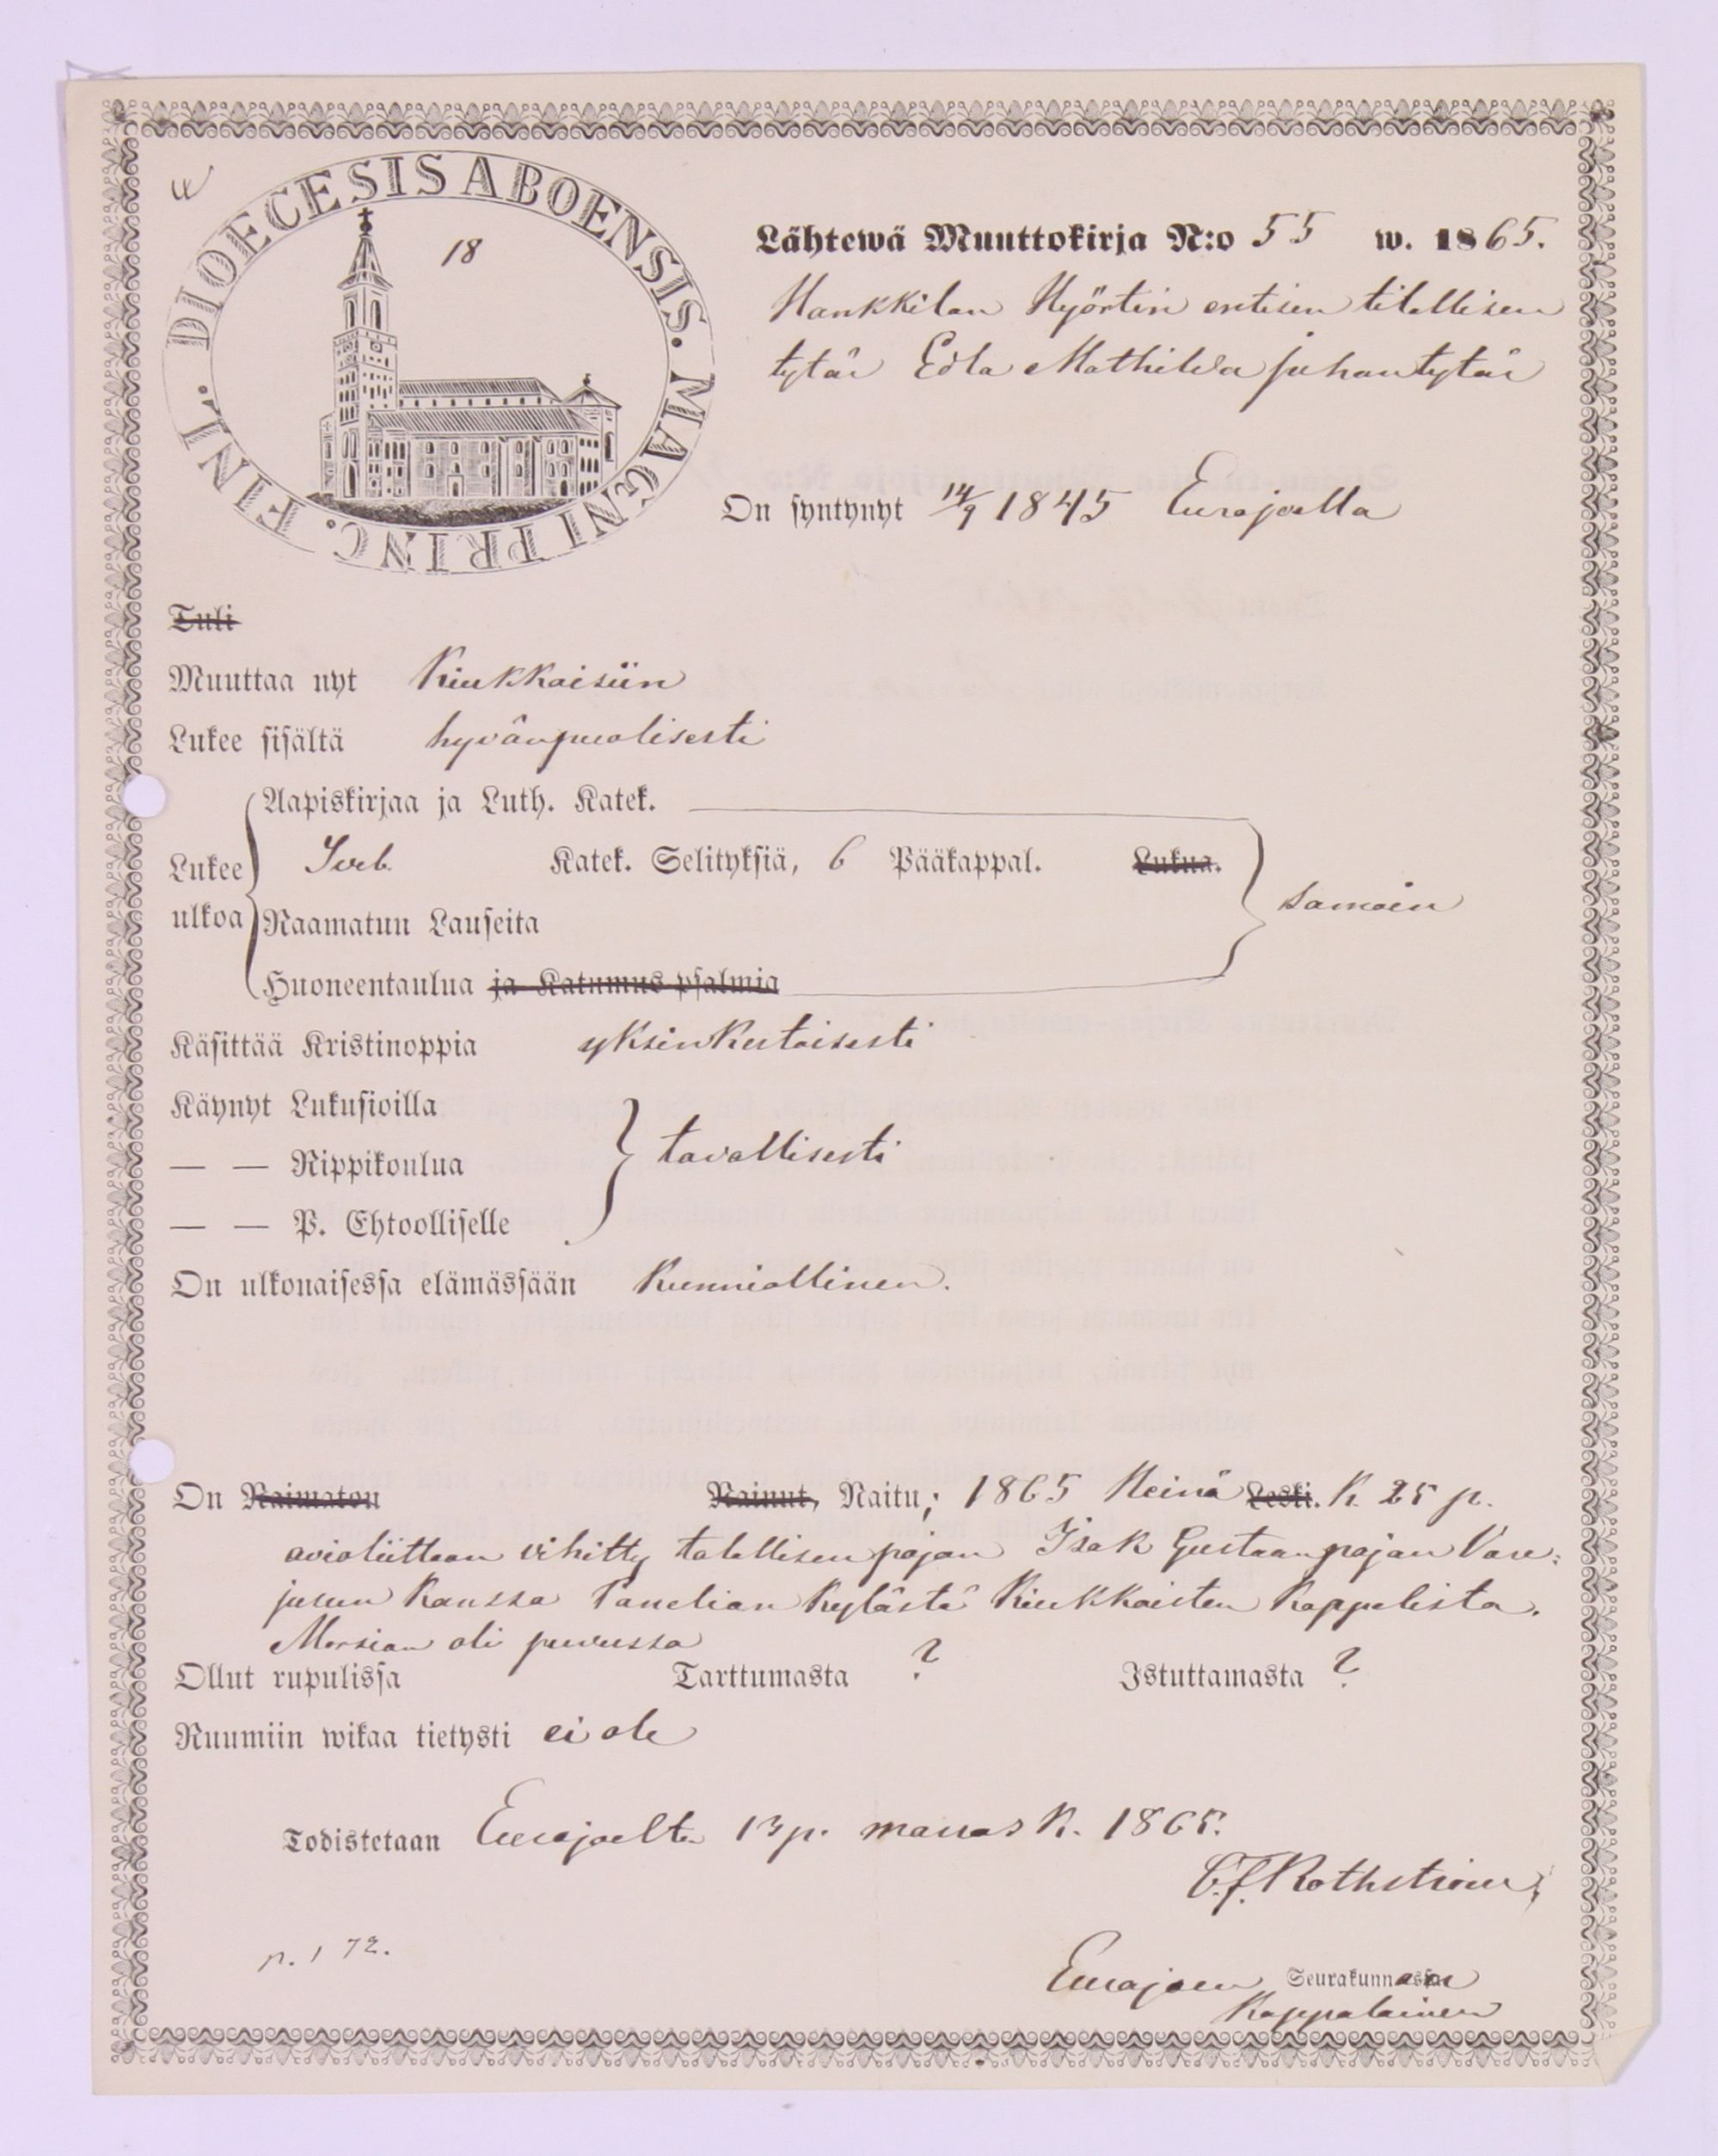 DIOECESIS ABOENSIS. MAGNI PRINC. FINL.
18
Lähtewä Muuttokirja N:o 55 w. 1865.
Hankkilan Hyörtin entisen tilallisen
tytär Edla Mathilda Juhantytär
On syntynyt 14/9 1845 Eurajoella
Tuli
Muuttaa nyt Kiukkaisiin
Lukee sisältä hyvänpuolisesti
Aapiskirjaa ja Luth. Katek.
Lukee Sveb. Katek. Selityksiä, 6 Pääkappal. Lukua. samoin
ulkoa Raamatun Lauseita
Huoneentaulua ja Katumus-psalmia
Käsittää Kristinoppia yksinkertaisesti
Käynyt Lukusioilla
— — Rippikoulua tavallisesti
— — P. Ehtoolliselle
On ulkonaisessa elämässään Kunniallinen.
On Naimaton Nainut, Naitu; 1865 Heinä Leski. K. 25 p.
avioliittoon vihitty talollisen pojan Isak Gustaanpojan Vare-
jusen Kanssa Panelian Kylästä Kiukkaisten Kappelista.
Morsian oli puvussa
Ollut rupulissa Tarttumasta ? Istuttamasta ?
Ruumiin wikaa tietysti ei ole
Todistetaan Eurajoelta 13 p. marras K. 1865.
C. J. Rothström
p. 172.
Eurajoen Seurakunnan
Kappalainen